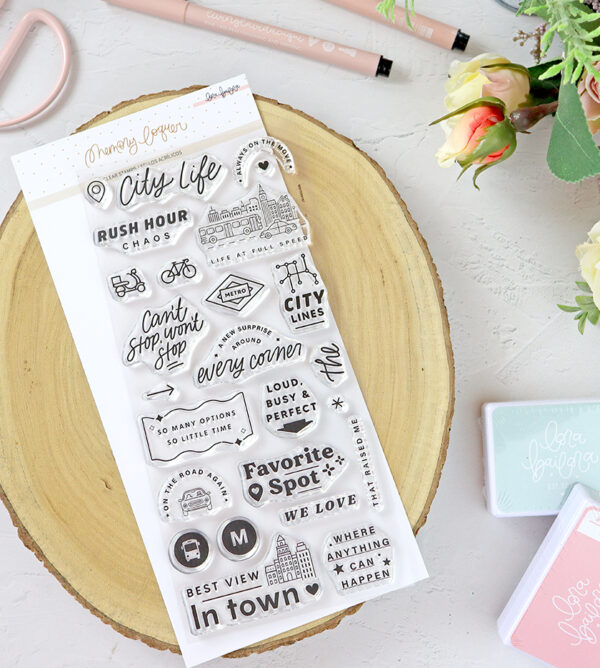 Memory Logner
CLEAR STAMPS / SELLOS ACRÍLICOS
lora bailora
City Life
ALWAYS ON THE MOVE
RUSH HOUR
CHAOS
LIFE AT FULL SPEED
METRO
CITY
LINES
Can't
stop, won't
stop
A NEW SURPRISE
AROUND
every corner
the
SO MANY OPTIONS
SO LITTLE TIME
LOUD,
BUSY &
PERFECT
THAT RAISED ME
ON THE ROAD AGAIN
Favorite
Spot
WE LOVE
M
WHERE
ANYTHING
CAN
HAPPEN
BEST VIEW
In town
lora
bailora
lora
bailora